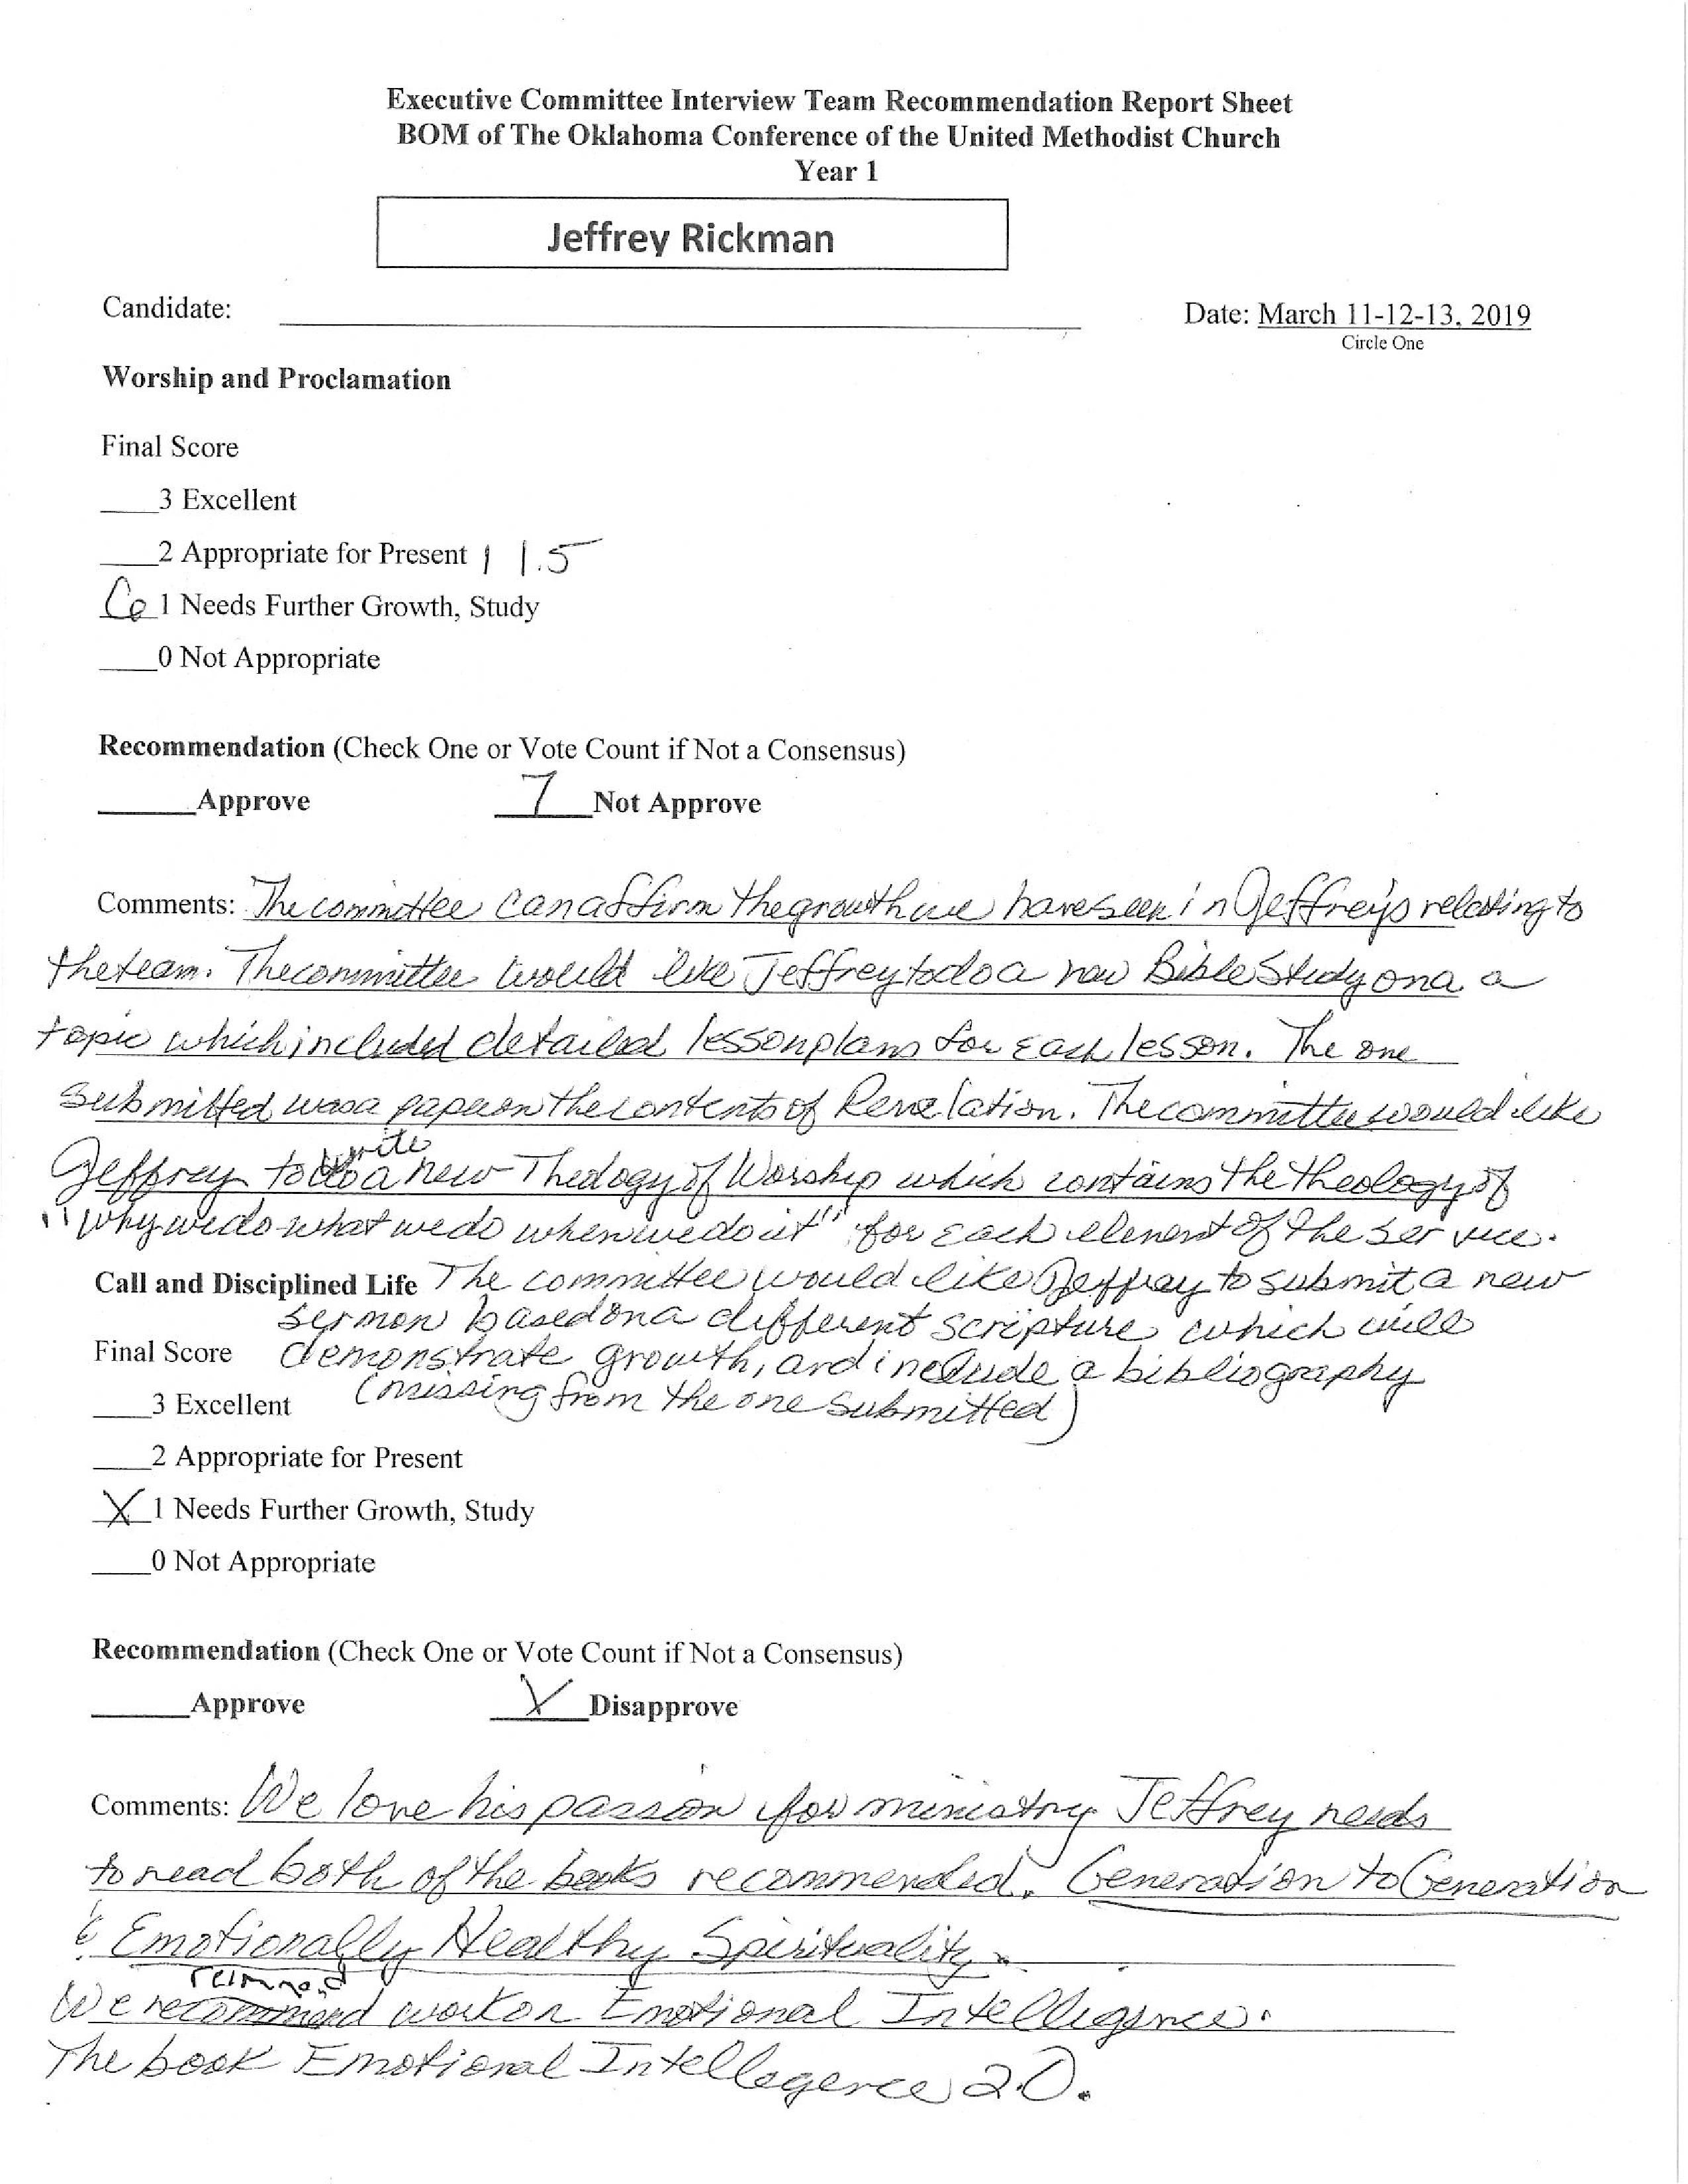 Executive Committee Interview Team Recommendation Report Sheet
BOM of The Oklahoma Conference of the United Methodist Church
Year 1
Jeffrey Rickman
Candidate: Date: March 11-12-13, 2019
Circle One
Worship and Proclamation
Final Score
___3 Excellent
___2 Appropriate for Present 1 1.5
6 1 Needs Further Growth, Study
___0 Not Appropriate
Recommendation (Check One or Vote Count if Not a Consensus)
_____Approve 7 Not Approve
Comments: The committee can affirm the growth we have seen in Jeffrey's relating to
the team. The committee would like Jeffrey to do a new Bible Study on a a
topic which included detailed lesson plans for each lesson. The one
submitted was a paper on the contents of Revelation. The committee would like
Jeffrey to write a new Theology of Worship which contains the theology of
"why we do what we do when we do it" for each element of the service.
Call and Disciplined Life The committee would like Jeffrey to submit a new
sermon based on a different scripture which will
Final Score demonstrate growth, and include a bibliography
___3 Excellent (missing from the one submitted)
___2 Appropriate for Present
X 1 Needs Further Growth, Study
___0 Not Appropriate
Recommendation (Check One or Vote Count if Not a Consensus)
_____Approve X Disapprove
Comments: We love his passion for ministry Jeffrey needs
to read both of the books recommended. Generation to Generation
& Emotionally Healthy Spirituality.
We recommend work on Emotional Intelligence.
The book Emotional Intellegence 2.0.